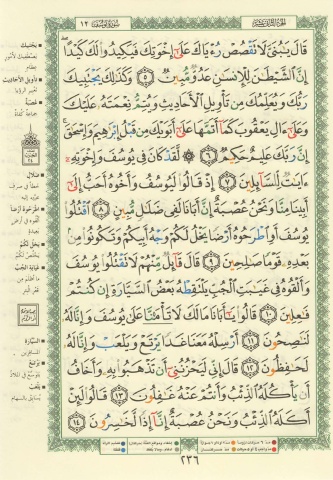 سورة يوسف ١٢
قَالَ يَٰبُنَيَّ لَا تَقْصُصْ رُءْيَاكَ عَلَىٰٓ إِخْوَتِكَ فَيَكِيدُوا۟ لَكَ كَيْدًا
إِنَّ ٱلشَّيْطَٰنَ لِلْإِنسَٰنِ عَدُوٌّ مُّبِينٌ ٥ وَكَذَٰلِكَ يَجْتَبِيكَ
رَبُّكَ وَيُعَلِّمُكَ مِن تَأْوِيلِ ٱلْأَحَادِيثِ وَيُتِمُّ نِعْمَتَهُۥ عَلَيْكَ
وَعَلَىٰٓ ءَالِ يَعْقُوبَ كَمَآ أَتَمَّهَا عَلَىٰٓ أَبَوَيْكَ مِن قَبْلُ إِبْرَٰهِيمَ وَإِسْحَٰقَ
إِنَّ رَبَّكَ عَلِيمٌ حَكِيمٌ ٦ لَّقَدْ كَانَ فِى يُوسُفَ وَإِخْوَتِهِۦٓ
ءَايَٰتٌ لِّلسَّآئِلِينَ ٧ إِذْ قَالُوا۟ لَيُوسُفُ وَأَخُوهُ أَحَبُّ إِلَىٰٓ
أَبِينَا مِنَّا وَنَحْنُ عُصْبَةٌ إِنَّ أَبَانَا لَفِى ضَلَٰلٍ مُّبِينٍ ٨ ٱقْتُلُوا۟
يُوسُفَ أَوِ ٱطْرَحُوهُ أَرْضًا يَخْلُ لَكُمْ وَجْهُ أَبِيكُمْ وَتَكُونُوا۟ مِنۢ
بَعْدِهِۦ قَوْمًا صَٰلِحِينَ ٩ قَالَ قَآئِلٌ مِّنْهُمْ لَا تَقْتُلُوا۟ يُوسُفَ
وَأَلْقُوهُ فِى غَيَٰبَتِ ٱلْجُبِّ يَلْتَقِطْهُ بَعْضُ ٱلسَّيَّارَةِ إِن كُنتُمْ
فَٰعِلِينَ ١٠ قَالُوا۟ يَٰٓأَبَانَا مَا لَكَ لَا تَأْمَ۫نَّا عَلَىٰ يُوسُفَ وَإِنَّا لَهُۥ
لَنَٰصِحُونَ ١١ أَرْسِلْهُ مَعَنَا غَدًا يَرْتَعْ وَيَلْعَبْ وَإِنَّا لَهُۥ
لَحَٰفِظُونَ ١٢ قَالَ إِنِّى لَيَحْزُنُنِىٓ أَن تَذْهَبُوا۟ بِهِۦ وَأَخَافُ
أَن يَأْكُلَهُ ٱلذِّئْبُ وَأَنتُمْ عَنْهُ غَٰفِلُونَ ١٣ قَالُوا۟ لَئِنْ
أَكَلَهُ ٱلذِّئْبُ وَنَحْنُ عُصْبَةٌ إِنَّآ إِذًا لَّخَٰسِرُونَ ١٤
يجتبيك
تأويل الأحاديث
عصبة
ضلال
اطرحوه أرضا
يخل لكم
غيابة الجب
السيارة
يرتع
يلعب
٢٣٦